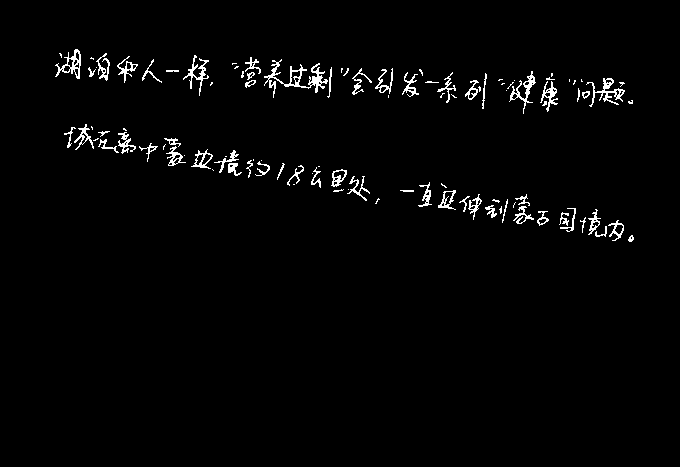 湖泊和人一样，“营养过剩”会引发一系列“健康”问题。
城在离中蒙边境约18公里处，一直延伸到蒙古国境内。